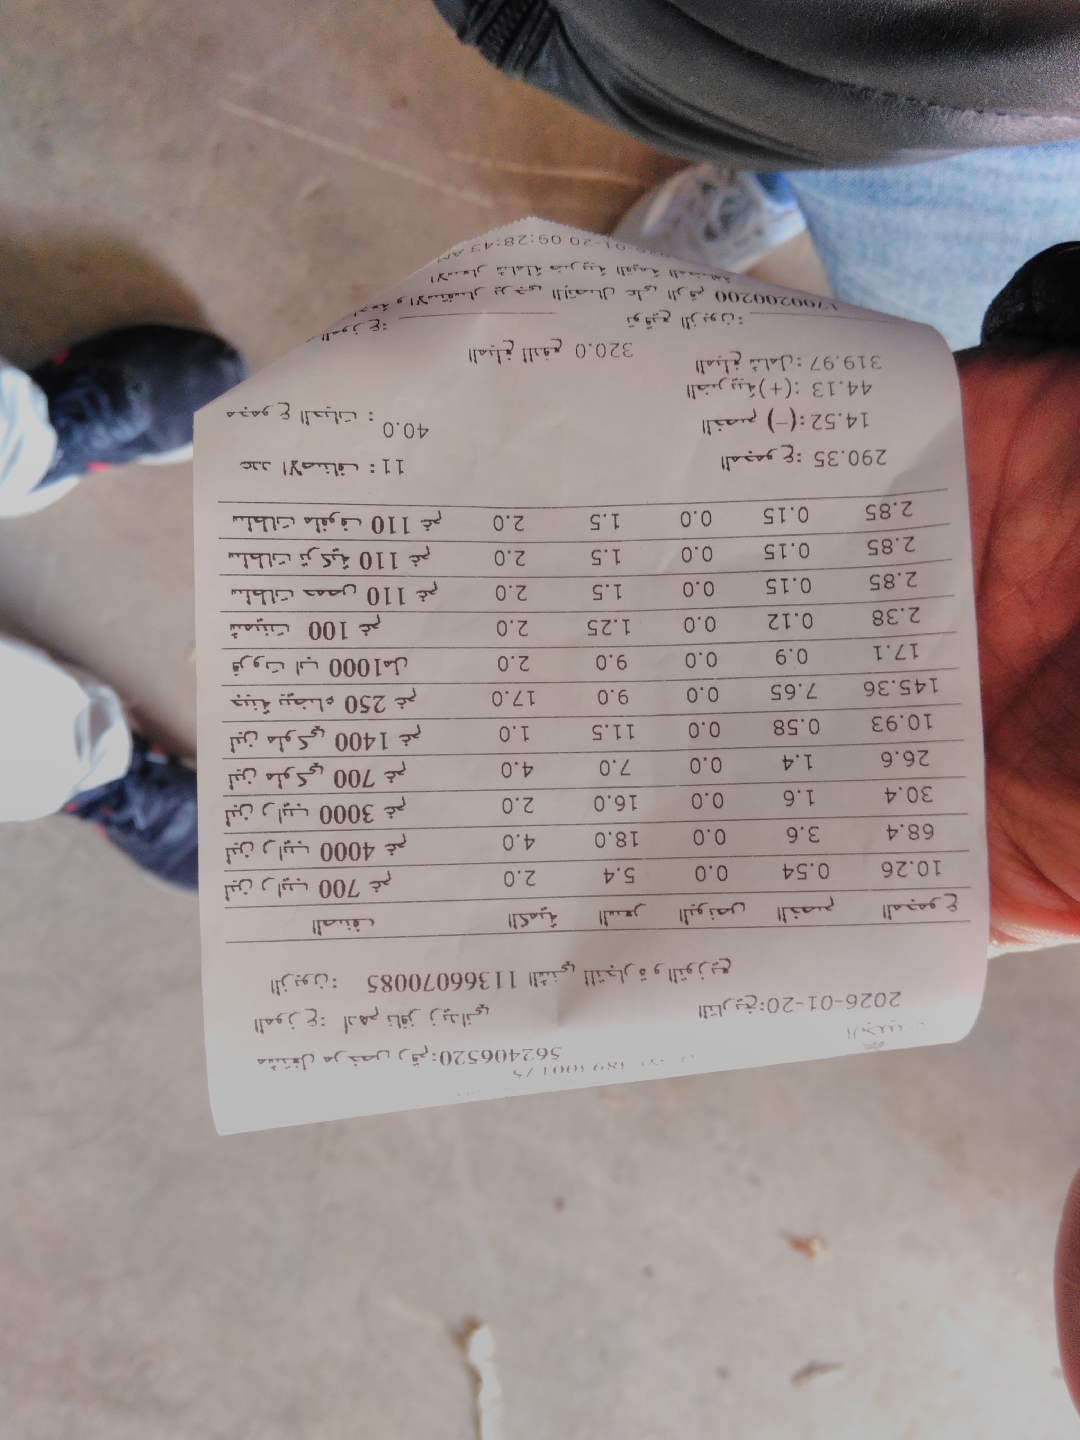 مشتغل مرخص رقم: 562406520
التاريخ: 2026-01-20
الموزع: ادهم فايز زيداني
الزبون: 11366070085 التقني للتجارة والتوزيع
الصنف الكمية السعر البونص الخصم المجموع
لبن رايب 700 غم 2.0 5.4 0.0 0.54 10.26
لبن رايب 4000 غم 4.0 18.0 0.0 3.6 68.4
لبن رايب 3000 غم 2.0 16.0 0.0 1.6 30.4
لبن ملوكي 700 غم 4.0 7.0 0.0 1.4 26.6
لبن ملوكي 1400 غم 1.0 11.5 0.0 0.58 10.93
جبنة بيضاء 250 غم 17.0 9.0 0.0 7.65 145.36
فروت اب 1000مل 2.0 9.0 0.0 0.9 17.1
شمينت 100 غم 2.0 1.25 0.0 0.12 2.38
سلطات حمص 110 غم 2.0 1.5 0.0 0.15 2.85
سلطات تركية 110 غم 2.0 1.5 0.0 0.15 2.85
سلطات ملفوف 110 غم 2.0 1.5 0.0 0.15 2.85
عدد الاصناف: 11 المجموع: 290.35
الخصم (-): 14.52
مجموع الحبات: 40.0
الضريبة(+): 44.13
المبلغ شامل: 319.97
المبلغ للدفع 320.0
الموزع: توقيع الزبون:
والاستفسار يرجى الاتصال على الرقم 1700200200
الاسعار شاملة ضريبة القيمة المضافة
01-20 09:28:43 AM